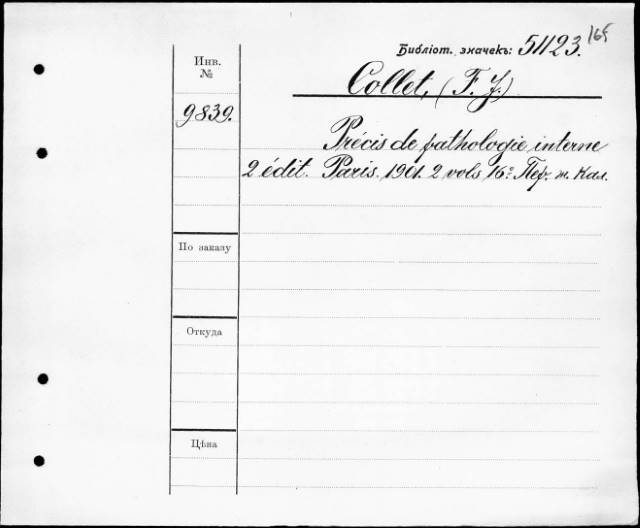 165
Библіот. значекъ: 51123.
Инв.
№
Collet, (F. J.)
9839.
Précis de pathologie interne
2 édit. Paris. 1901. 2 vols 16º Пер. т. Кал.
По заказу
Откуда
Цѣна